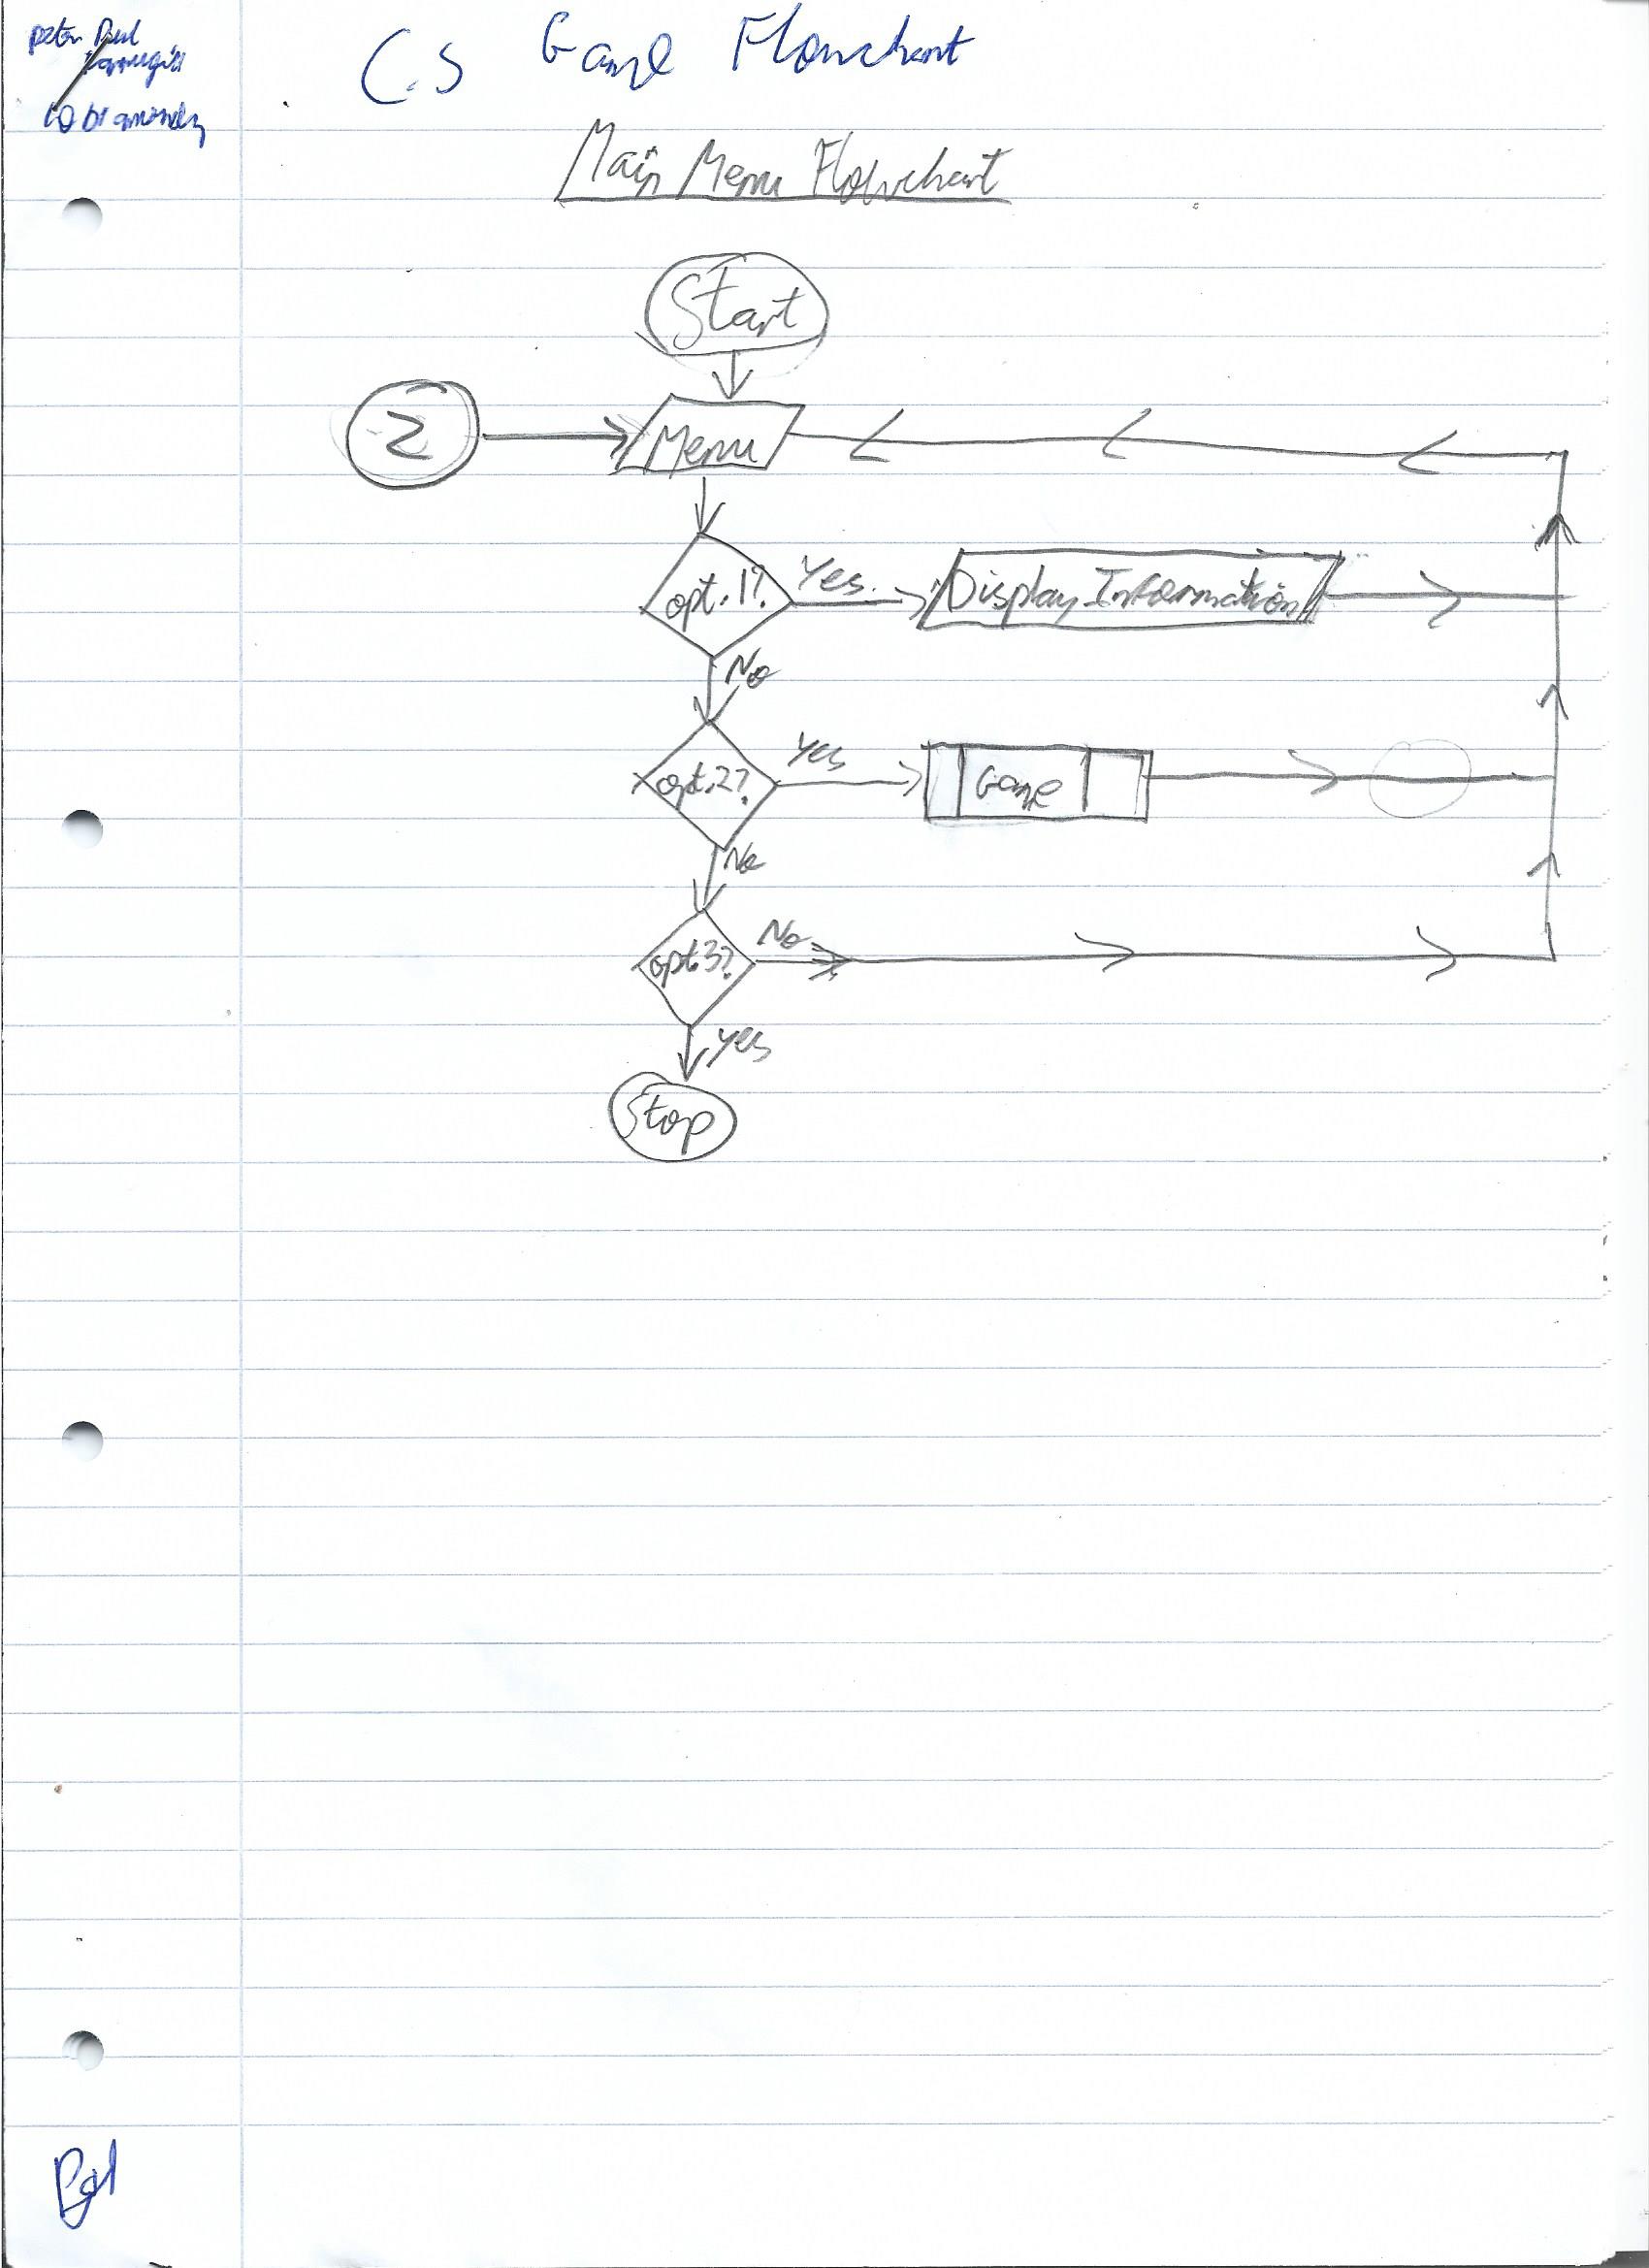 Peter Paul
C.S Game Flowchart
Main Menu Flowchart
Start
2
Menu
opt.1?
Yes.
Display Information
No
opt.2?
Yes
Game
No
opt.3?
No
Yes
Stop